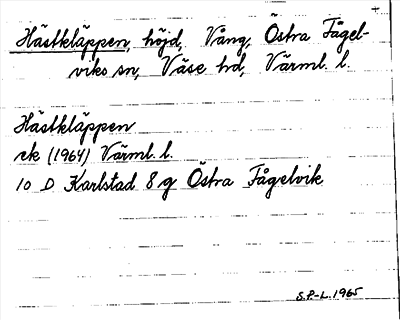 Hästkläppen, höjd, Vång, Östra Fågel-
viks sn, Väse hd, Värml. l.
Hästkläppen
ek (1964) Värml. l.
10 D Karlstad 8 g Östra Fågelvik
S.P-L. 1965